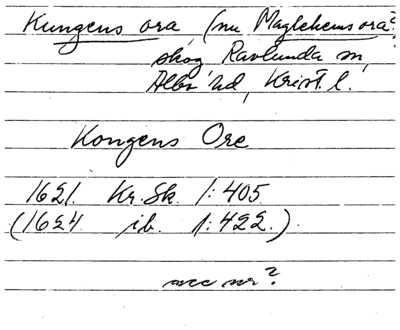 Kungens ora, (nu Maglehems ora?
skog Ravlunda sn,
Albo hd, Krist. l.
Kongens Ore
1621. Kr. Sk. 1:405
(1624 ib. 1:422.)